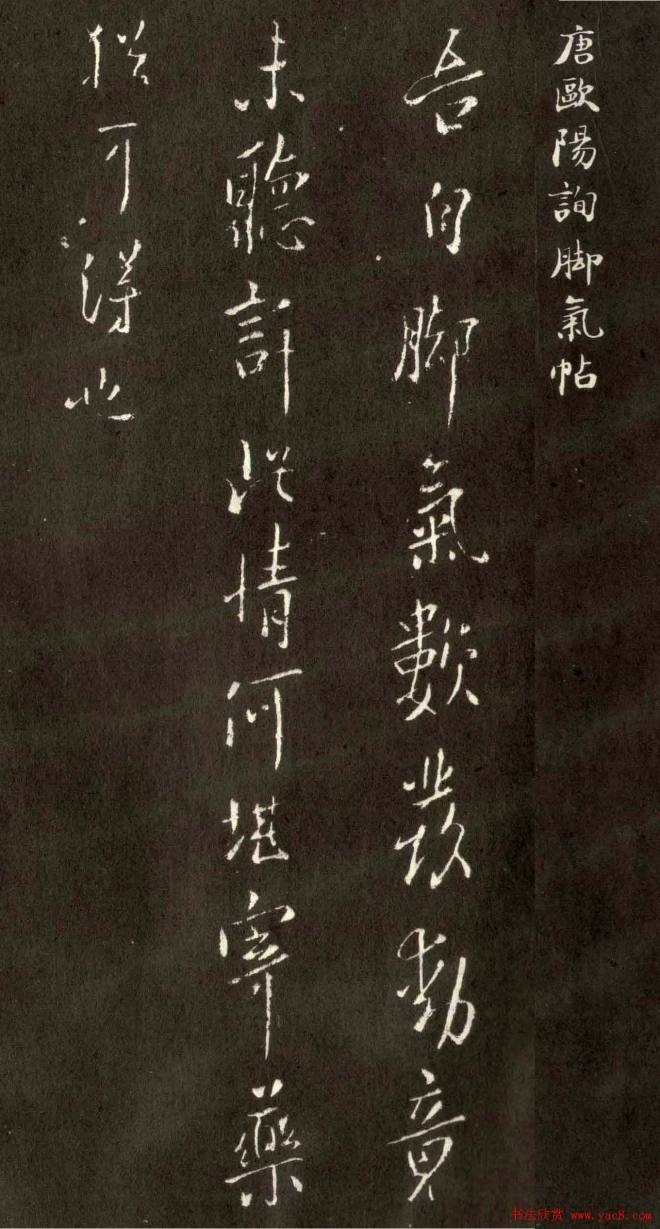 唐歐陽詢脚氣帖
吾自脚氣數發動竟
未聽許此情何堪寄藥
猶可得也
书法欣赏 www.yac8.com